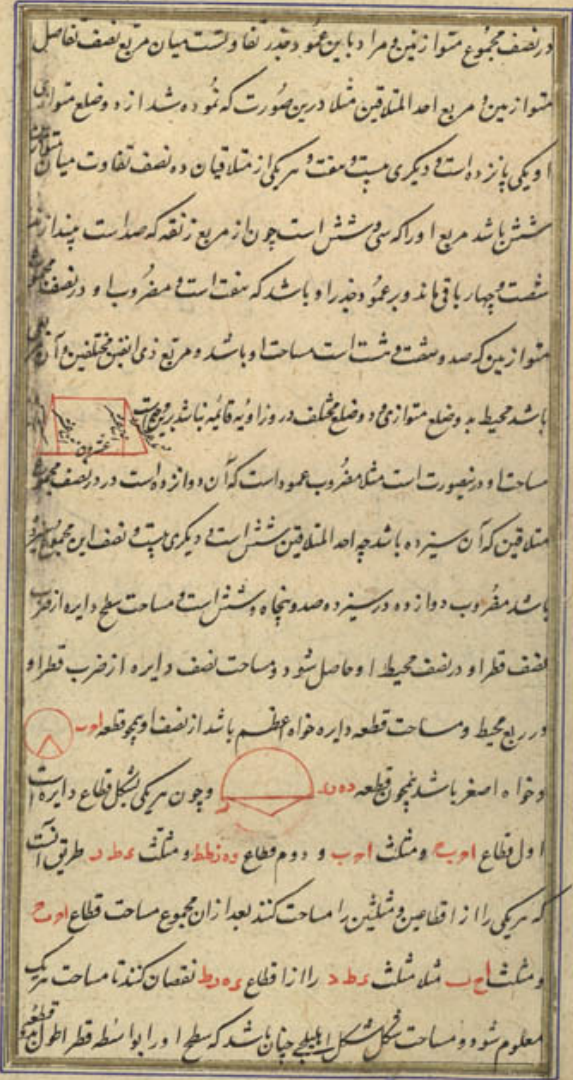 در نصف مجموع متوازیین و مراد باین عمود جذر تفاوتست میان مربع نصف تفاضل
متوازیین و مربع احد المتلاقیین مثلا درین صورت که نموده شد از دو ضلع متوازی
او یکی پانزده است و دیکری بیست و هفت و هریکی از متلاقیان ده نصف تفاوت میان
شش باشد مربع او را که سی و شش است چون از مربع که صد است بیندازند
شصت و چهار باقی ماند و بر عمود جذر او باشد که هشت است و مضروب او در نصف مجموع
متوازیین که صد و شصت و هشت است مساحت او باشد و مربع ذی
باشد محیط به دو ضلع متوازی و دو ضلع مختلف در و زاویه قائمه نباشد برین صورت
مساحت او درینصورت است مثلا مضروب عمود است که آن دوازده است در نصف مجموع
متلاقیین که آن سیزده باشد چه احد المتلاقیین شش است و دیکری بیست و نصف این مجموع سیزده
باشد مضروب دوازده در سیزده صد و پنجاه و شش است و مساحت سطح دایره از ضرب
نصف قطر او در نصف محیط او حاصل شود و مساحت نصف دایره از ضرب قطر او
در ربع محیط و مساحت قطعه دایره خواه اعظم باشد از نصف او همچو قطعه
و خواه اصغر باشد همچون قطعه و چون هریکی بشکل قطاع دایره است
اول قطاع و مثلث و دوم قطاع و مثلث طریق آنست
که هریکی را از قطاعین و مثلثین را مساحت کنند بعد ازان مجموع مساحت قطاع
و مثلث مثلا مثلث را از قطاع نقصان کنند تا مساحت هریک
معلوم شود و مساحت شکل اهلیلجی چنان باشد که سطح او را بواسطه قطر اطول